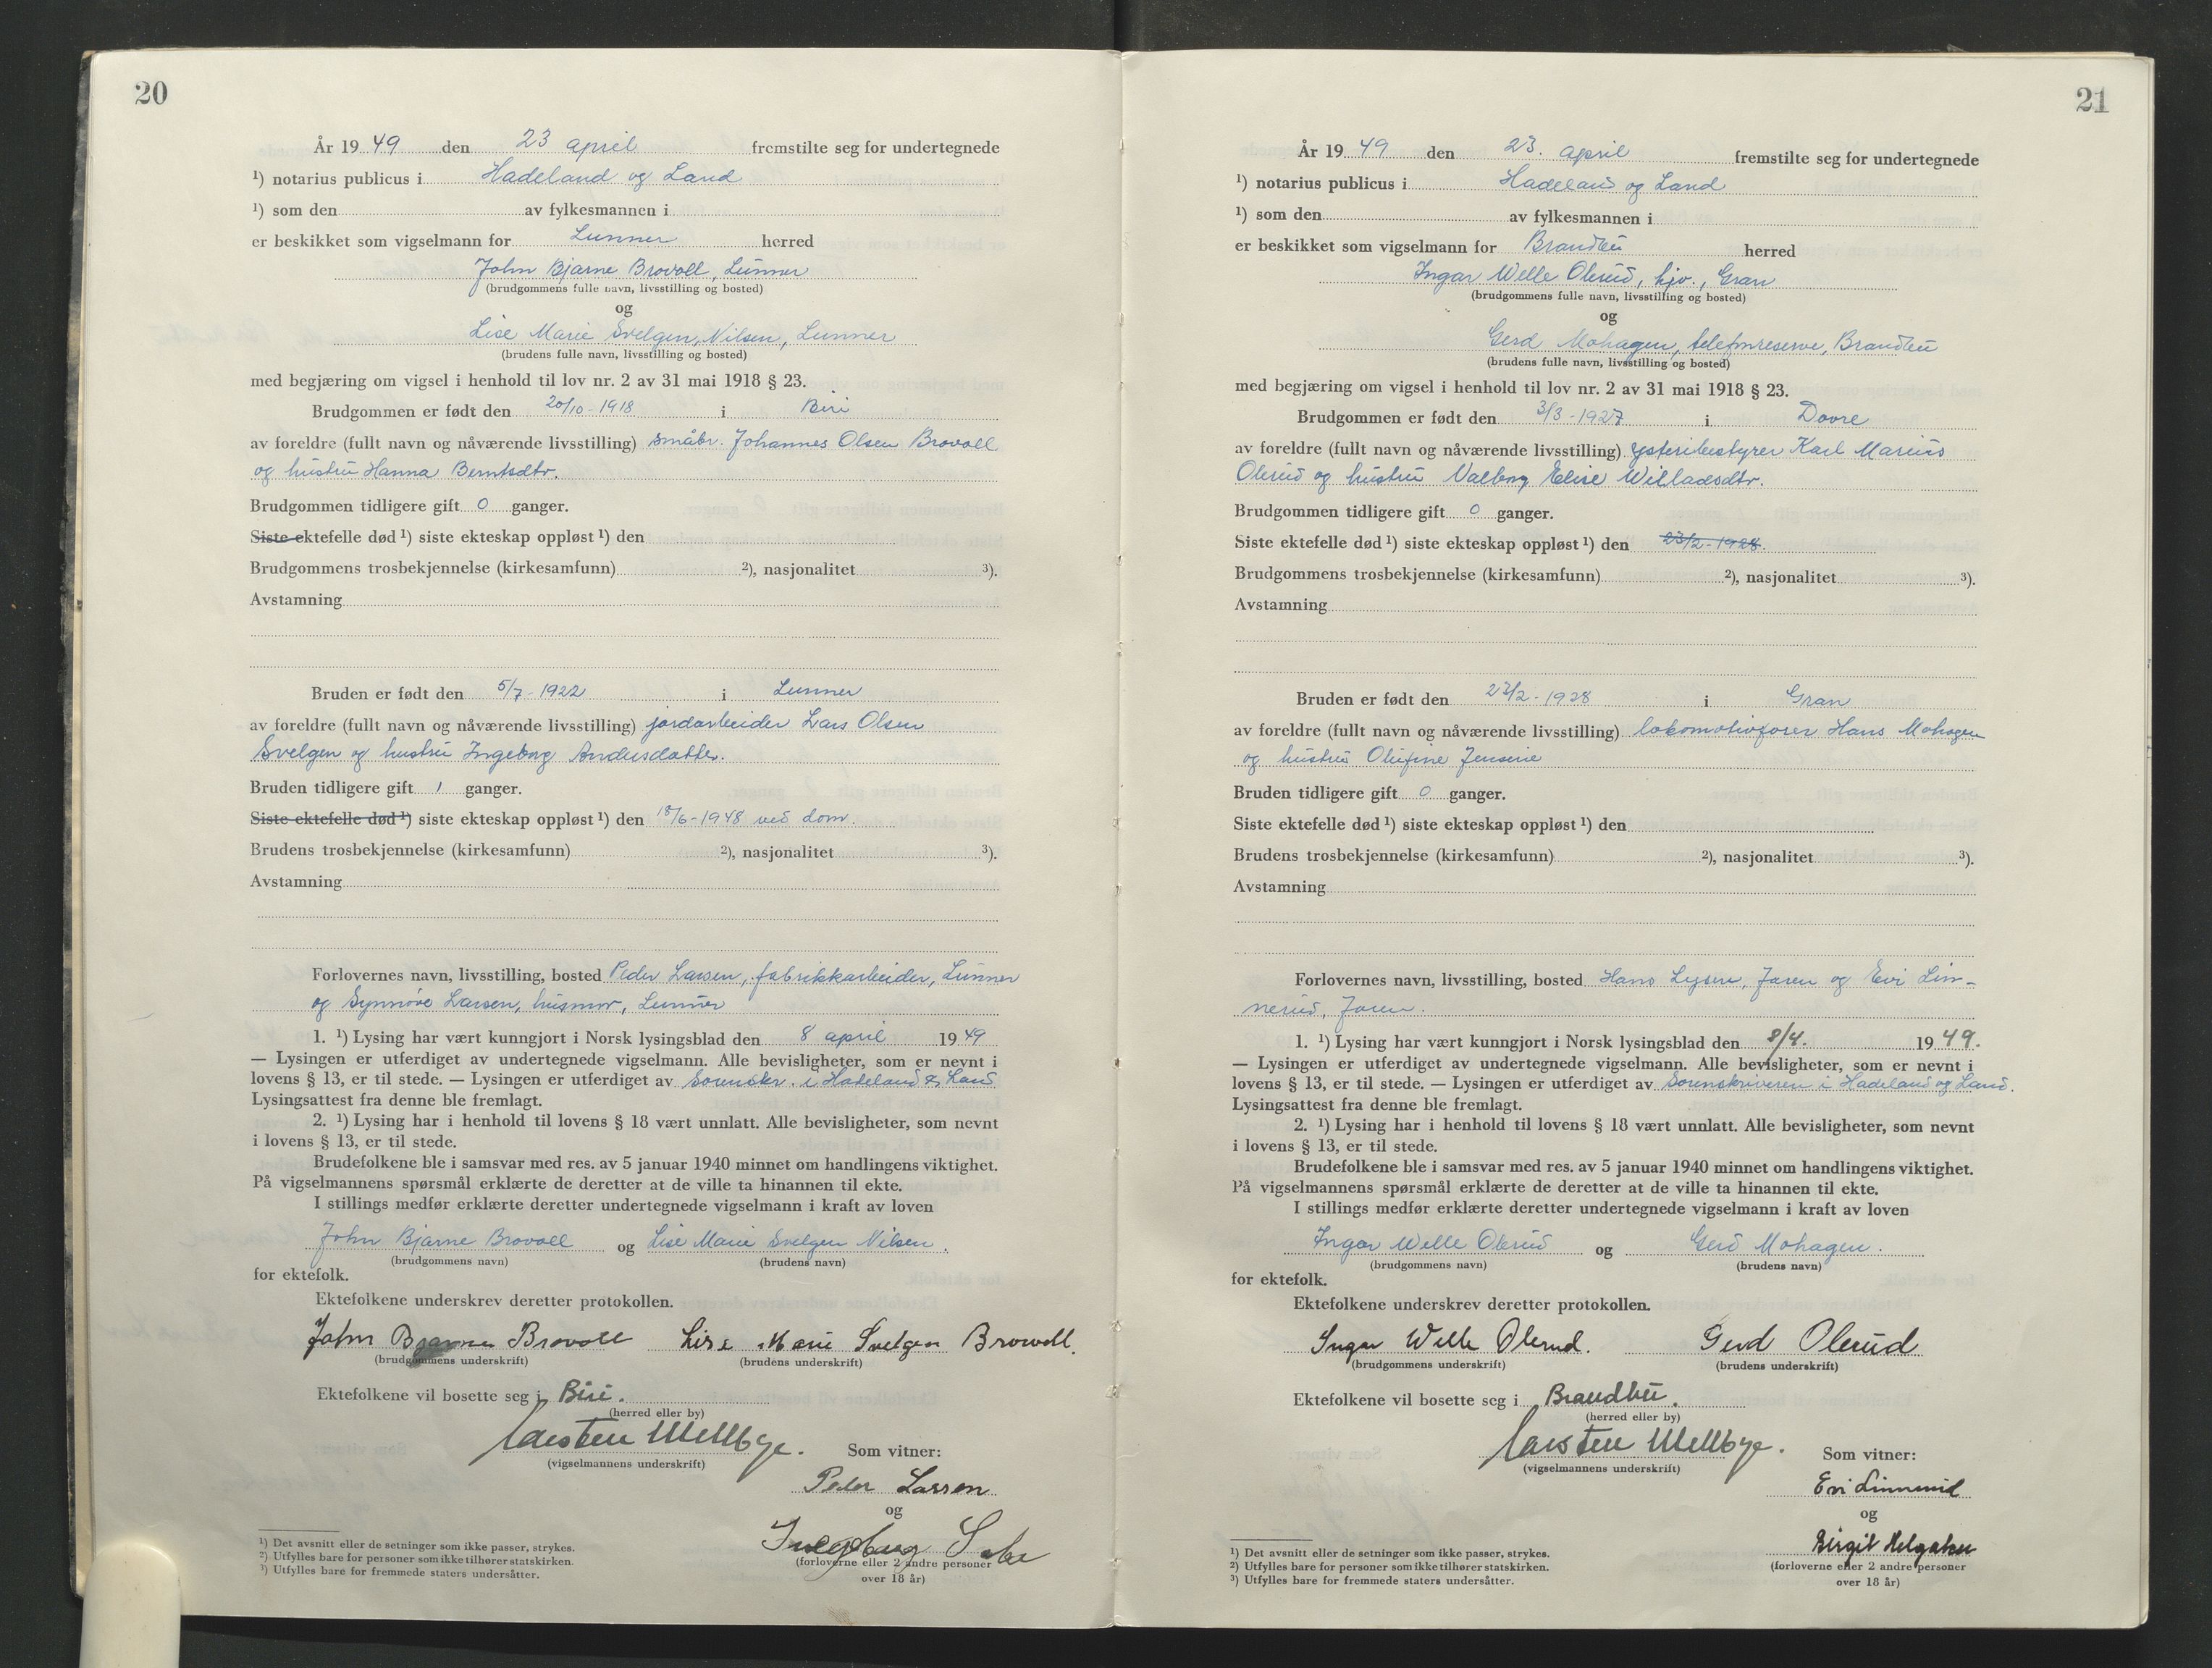 20
År 1949 den 23 april fremstilte seg for undertegnede
¹) notarius publicus i Hadeland og Land
¹) som den av fylkesmannen i
er beskikket som vigselmann for Lunner herred
John Bjarne Brovoll, Lunner
(brudgommens fulle navn, livsstilling og bosted)
og
Lise Marie Svelgen Nilsen, Lunner
(brudens fulle navn, livsstilling og bosted)
med begjæring om vigsel i henhold til lov nr. 2 av 31 mai 1918 § 23.
Brudgommen er født den 20/10-1918 i Biri
av foreldre (fullt navn og nåværende livsstilling) småbr. Johannes Olsen Brovoll
og hustru Hanna Berntsdtr.
Brudgommen tidligere gift 0 ganger.
Siste ektefelle død ¹) siste ekteskap oppløst ¹) den
Brudgommens trosbekjennelse (kirkesamfunn) ²), nasjonalitet ³).
Avstamning
Bruden er født den 5/7-1922 i Lunner
av foreldre (fullt navn og nåværende livsstilling) jordarbeider Lars Olsen
Svelgen og hustru Ingeborg Andersdatter.
Bruden tidligere gift 1 ganger.
Siste ektefelle død ¹) siste ekteskap oppløst ¹) den 18/6-1948 ved dom.
Brudens trosbekjennelse (kirkesamfunn) ²), nasjonalitet ³).
Avstamning
Forlovernes navn, livsstilling, bosted Peder Larsen, fabrikkarbeider, Lunner
og Synnöve Larsen, husmor, Lunner
1. ¹) Lysing har vært kunngjort i Norsk lysingsblad den 8 april 1949
— Lysingen er utferdiget av undertegnede vigselmann. Alle bevisligheter, som er nevnt i
lovens § 13, er til stede. — Lysingen er utferdiget av Sorenskr. i Hadeland & Land
Lysingsattest fra denne ble fremlagt.
2. ¹) Lysing har i henhold til lovens § 18 vært unnlatt. Alle bevisligheter, som nevnt
i lovens § 13, er til stede.
Brudefolkene ble i samsvar med res. av 5 januar 1940 minnet om handlingens viktighet.
På vigselmannens spørsmål erklærte de deretter at de ville ta hinannen til ekte.
I stillings medfør erklærte deretter undertegnede vigselmann i kraft av loven
John Bjarne Brovoll og Lise Marie Svelgen Nilsen.
(brudgommens navn) (brudens navn)
for ektefolk.
Ektefolkene underskrev deretter protokollen.
John Bjarne Brovoll Lise Marie Svelgen Brovoll.
(brudgommens underskrift) (brudens underskrift)
Ektefolkene vil bosette seg i Biri.
(herred eller by)
Carsten Mellbye.
(vigselmannens underskrift)
Som vitner:
Peder Larsen
og
Ingeborg
(forloverne eller 2 andre personer
over 18 år)
¹) Det avsnitt eller de setninger som ikke passer, strykes.
²) Utfylles bare for personer som ikke tilhører statskirken.
³) Utfylles bare for fremmede staters undersåtter.
21
År 1949 den 23. april fremstilte seg for undertegnede
¹) notarius publicus i Hadeland og Land
¹) som den av fylkesmannen i
er beskikket som vigselmann for Brandbu herred
Ingar Welle Olerud, hjv., Gran
(brudgommens fulle navn, livsstilling og bosted)
og
Gerd Mohagen, telefonreserve, Brandbu
(brudens fulle navn, livsstilling og bosted)
med begjæring om vigsel i henhold til lov nr. 2 av 31 mai 1918 § 23.
Brudgommen er født den 3/3-1927 i Dovre
av foreldre (fullt navn og nåværende livsstilling) ysteribestyrer Karl Marius
Olerud og hustru Valborg Elise Willadsdtr.
Brudgommen tidligere gift 0 ganger.
Siste ektefelle død ¹) siste ekteskap oppløst ¹) den 23/2-1928.
Brudgommens trosbekjennelse (kirkesamfunn) ²), nasjonalitet ³).
Avstamning
Bruden er født den 23/2-1928 i Gran
av foreldre (fullt navn og nåværende livsstilling) lokomotivfører Hans Mohagen
og hustru Olufine Jensine
Bruden tidligere gift 0 ganger.
Siste ektefelle død ¹) siste ekteskap oppløst ¹) den
Brudens trosbekjennelse (kirkesamfunn) ²), nasjonalitet ³).
Avstamning
Forlovernes navn, livsstilling, bosted Hans Lysen, Jaren og Evi Lin-
nerud, Jaren.
1. ¹) Lysing har vært kunngjort i Norsk lysingsblad den 8/4. 1949.
— Lysingen er utferdiget av undertegnede vigselmann. Alle bevisligheter, som er nevnt i
lovens § 13, er til stede. — Lysingen er utferdiget av Sorenskriveren i Hadeland og Land.
Lysingsattest fra denne ble fremlagt.
2. ¹) Lysing har i henhold til lovens § 18 vært unnlatt. Alle bevisligheter, som nevnt
i lovens § 13, er til stede.
Brudefolkene ble i samsvar med res. av 5 januar 1940 minnet om handlingens viktighet.
På vigselmannens spørsmål erklærte de deretter at de ville ta hinannen til ekte.
I stillings medfør erklærte deretter undertegnede vigselmann i kraft av loven
Ingar Welle Olerud og Gerd Mohagen.
(brudgommens navn) (brudens navn)
for ektefolk.
Ektefolkene underskrev deretter protokollen.
Ingar Welle Olerud. Gerd Olerud
(brudgommens underskrift) (brudens underskrift)
Ektefolkene vil bosette seg i Brandbu.
(herred eller by)
Carsten Mellbye.
(vigselmannens underskrift)
Som vitner:
Evi Linnerud
og
Birgit Helgaker
(forloverne eller 2 andre personer
over 18 år)
¹) Det avsnitt eller de setninger som ikke passer, strykes.
²) Utfylles bare for personer som ikke tilhører statskirken.
³) Utfylles bare for fremmede staters undersåtter.